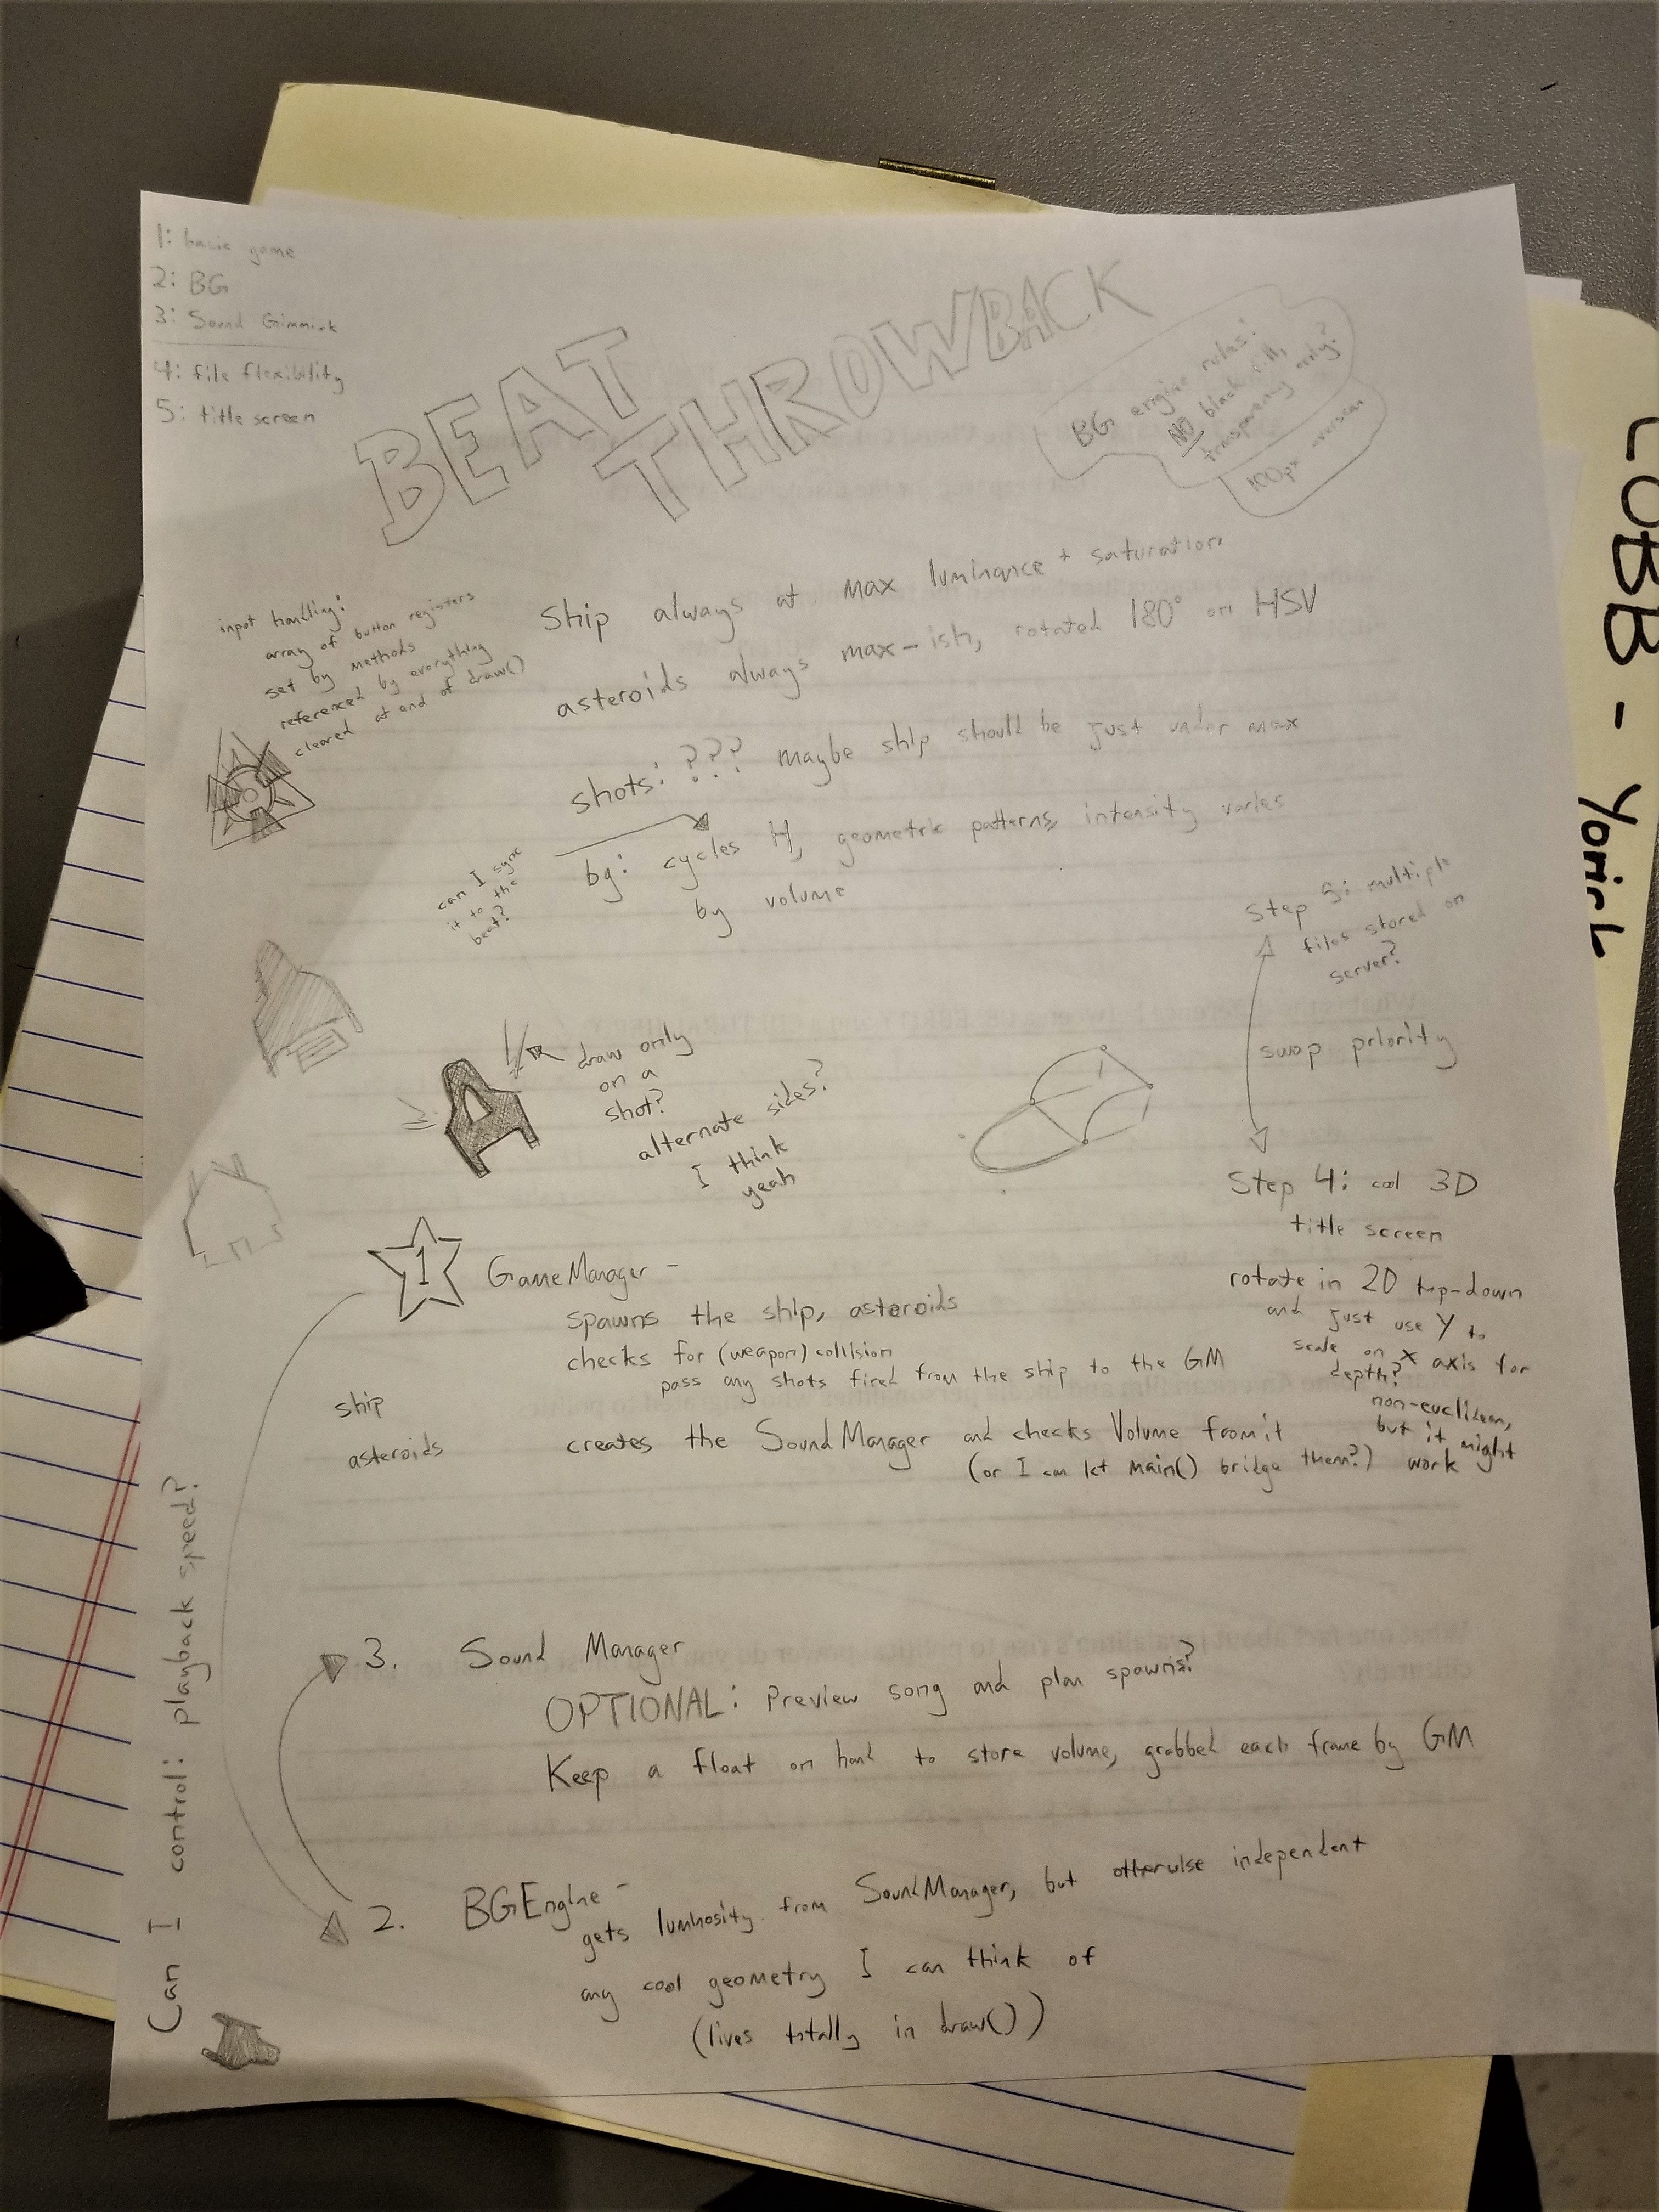 1: basic game
2: BG
3: Sound Gimmick
4: file flexibility
5: title screen
BEAT
THROWBACK
BG engine rules:
NO black fill,
transparency only?
100px overscan
input handling:
array of button registers
set by methods
referenced by everything
cleared at end of draw()
Ship always at max luminance + saturation
asteroids always max-ish, rotated 180° on HSV
shots: ??? maybe ship should be just under max
bg: cycles H, geometric patterns, intensity varies
by volume
can I sync
it to the
beat?
Step 5: multiple
files stored on
server?
swap priority
Step 4: cool 3D
title screen
rotate in 2D top-down
and just use Y to
scale on X axis for
depth?
non-euclidean,
but it might
work
draw only
on a
shot?
alternate sides?
I think
yeah
1
GameManager -
spawns the ship, asteroids
checks for (weapon) collision
pass any shots fired from the ship to the GM
ship
asteroids
creates the SoundManager and checks Volume from it
(or I can let main() bridge them?)
3. Sound Manager
OPTIONAL: Preview song and plan spawns?
Keep a float on hand to store volume, grabbed each frame by GM
2. BGEngine -
gets luminosity from SoundManager, but otherwise independent
any cool geometry I can think of
(lives totally in draw())
Can I control: playback speed?
LOBB - Yorick